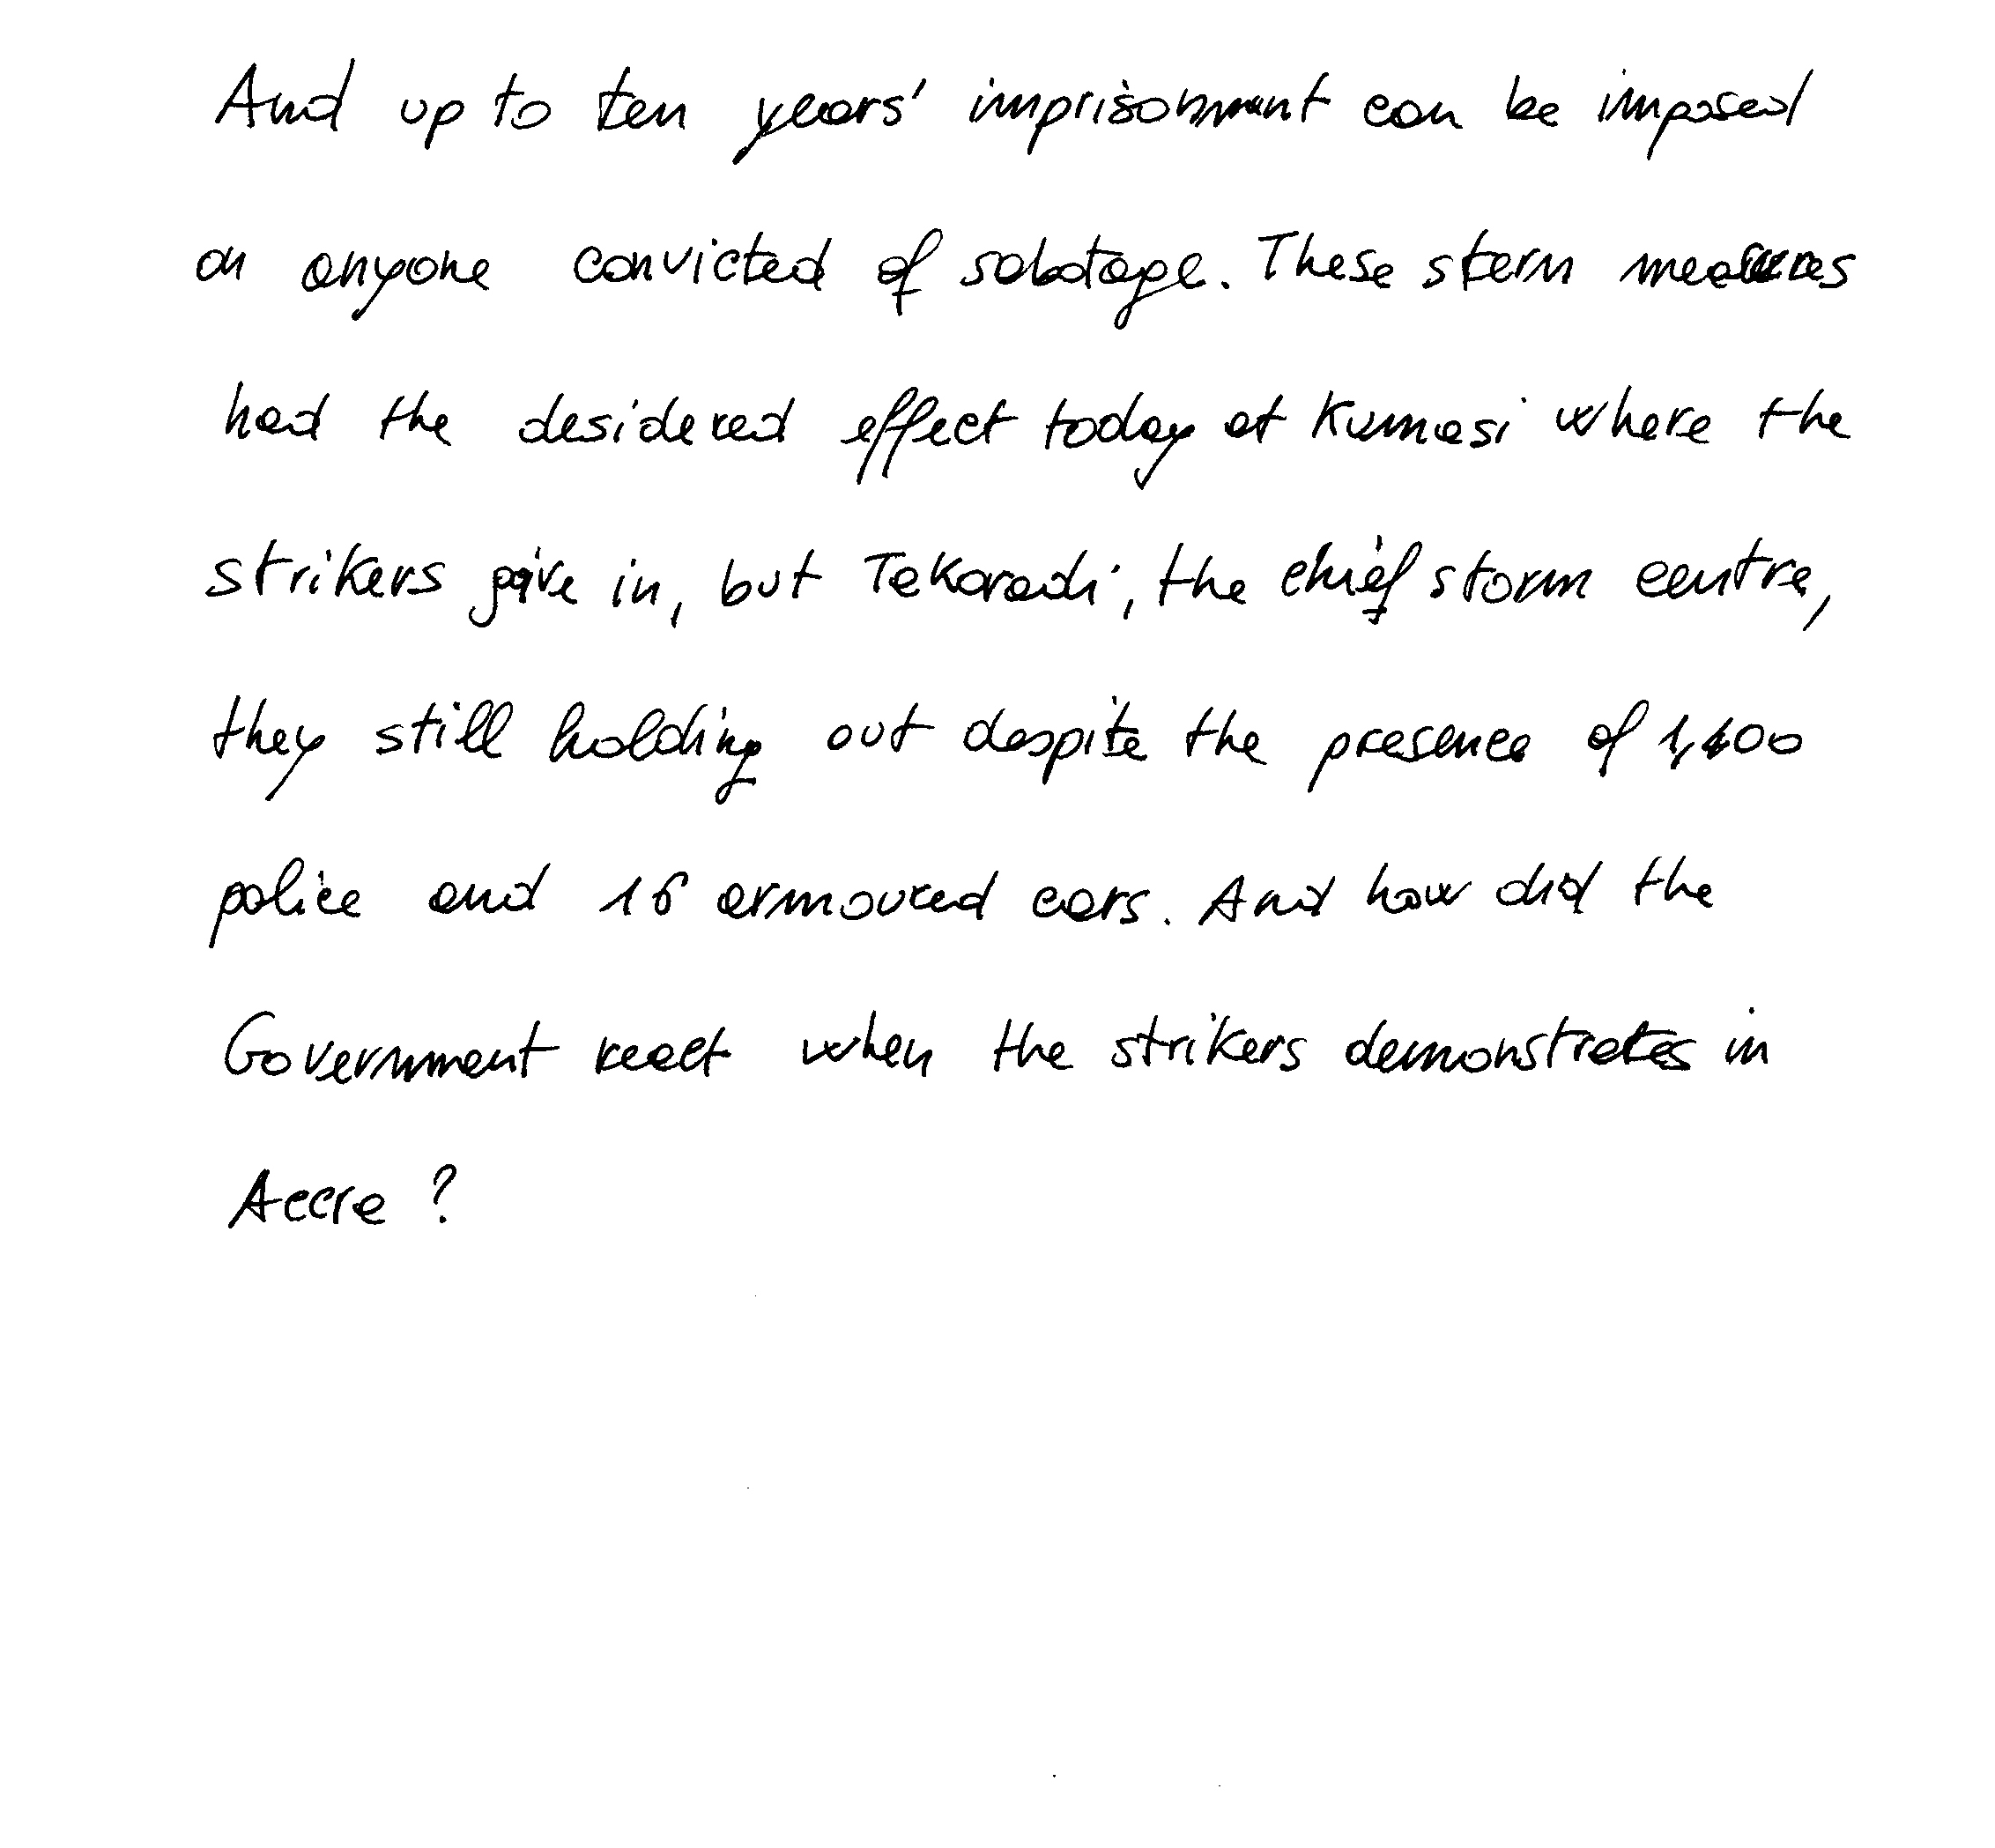 And up to ten years' imprisonment can be imposed
on anyone convicted of sabotage. These stern measures
had the desidered effect today at Kumasi where the
strikers give in, but Takoradi, the chief storm centre,
they still holding out despite the presence of 1,400
police and 16 armoured cars. And how did the
Government react when the strikers demonstrates in
Accra?